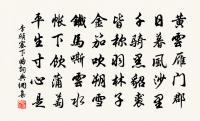 黄雲雁門郡
日暮風沙里
千騎黑貂裘
皆称羽林子
金笳吹朔雪
鐵馬嘶雲水
帳下飲蒲萄
平生寸心是
李頎塞下曲詞典網集